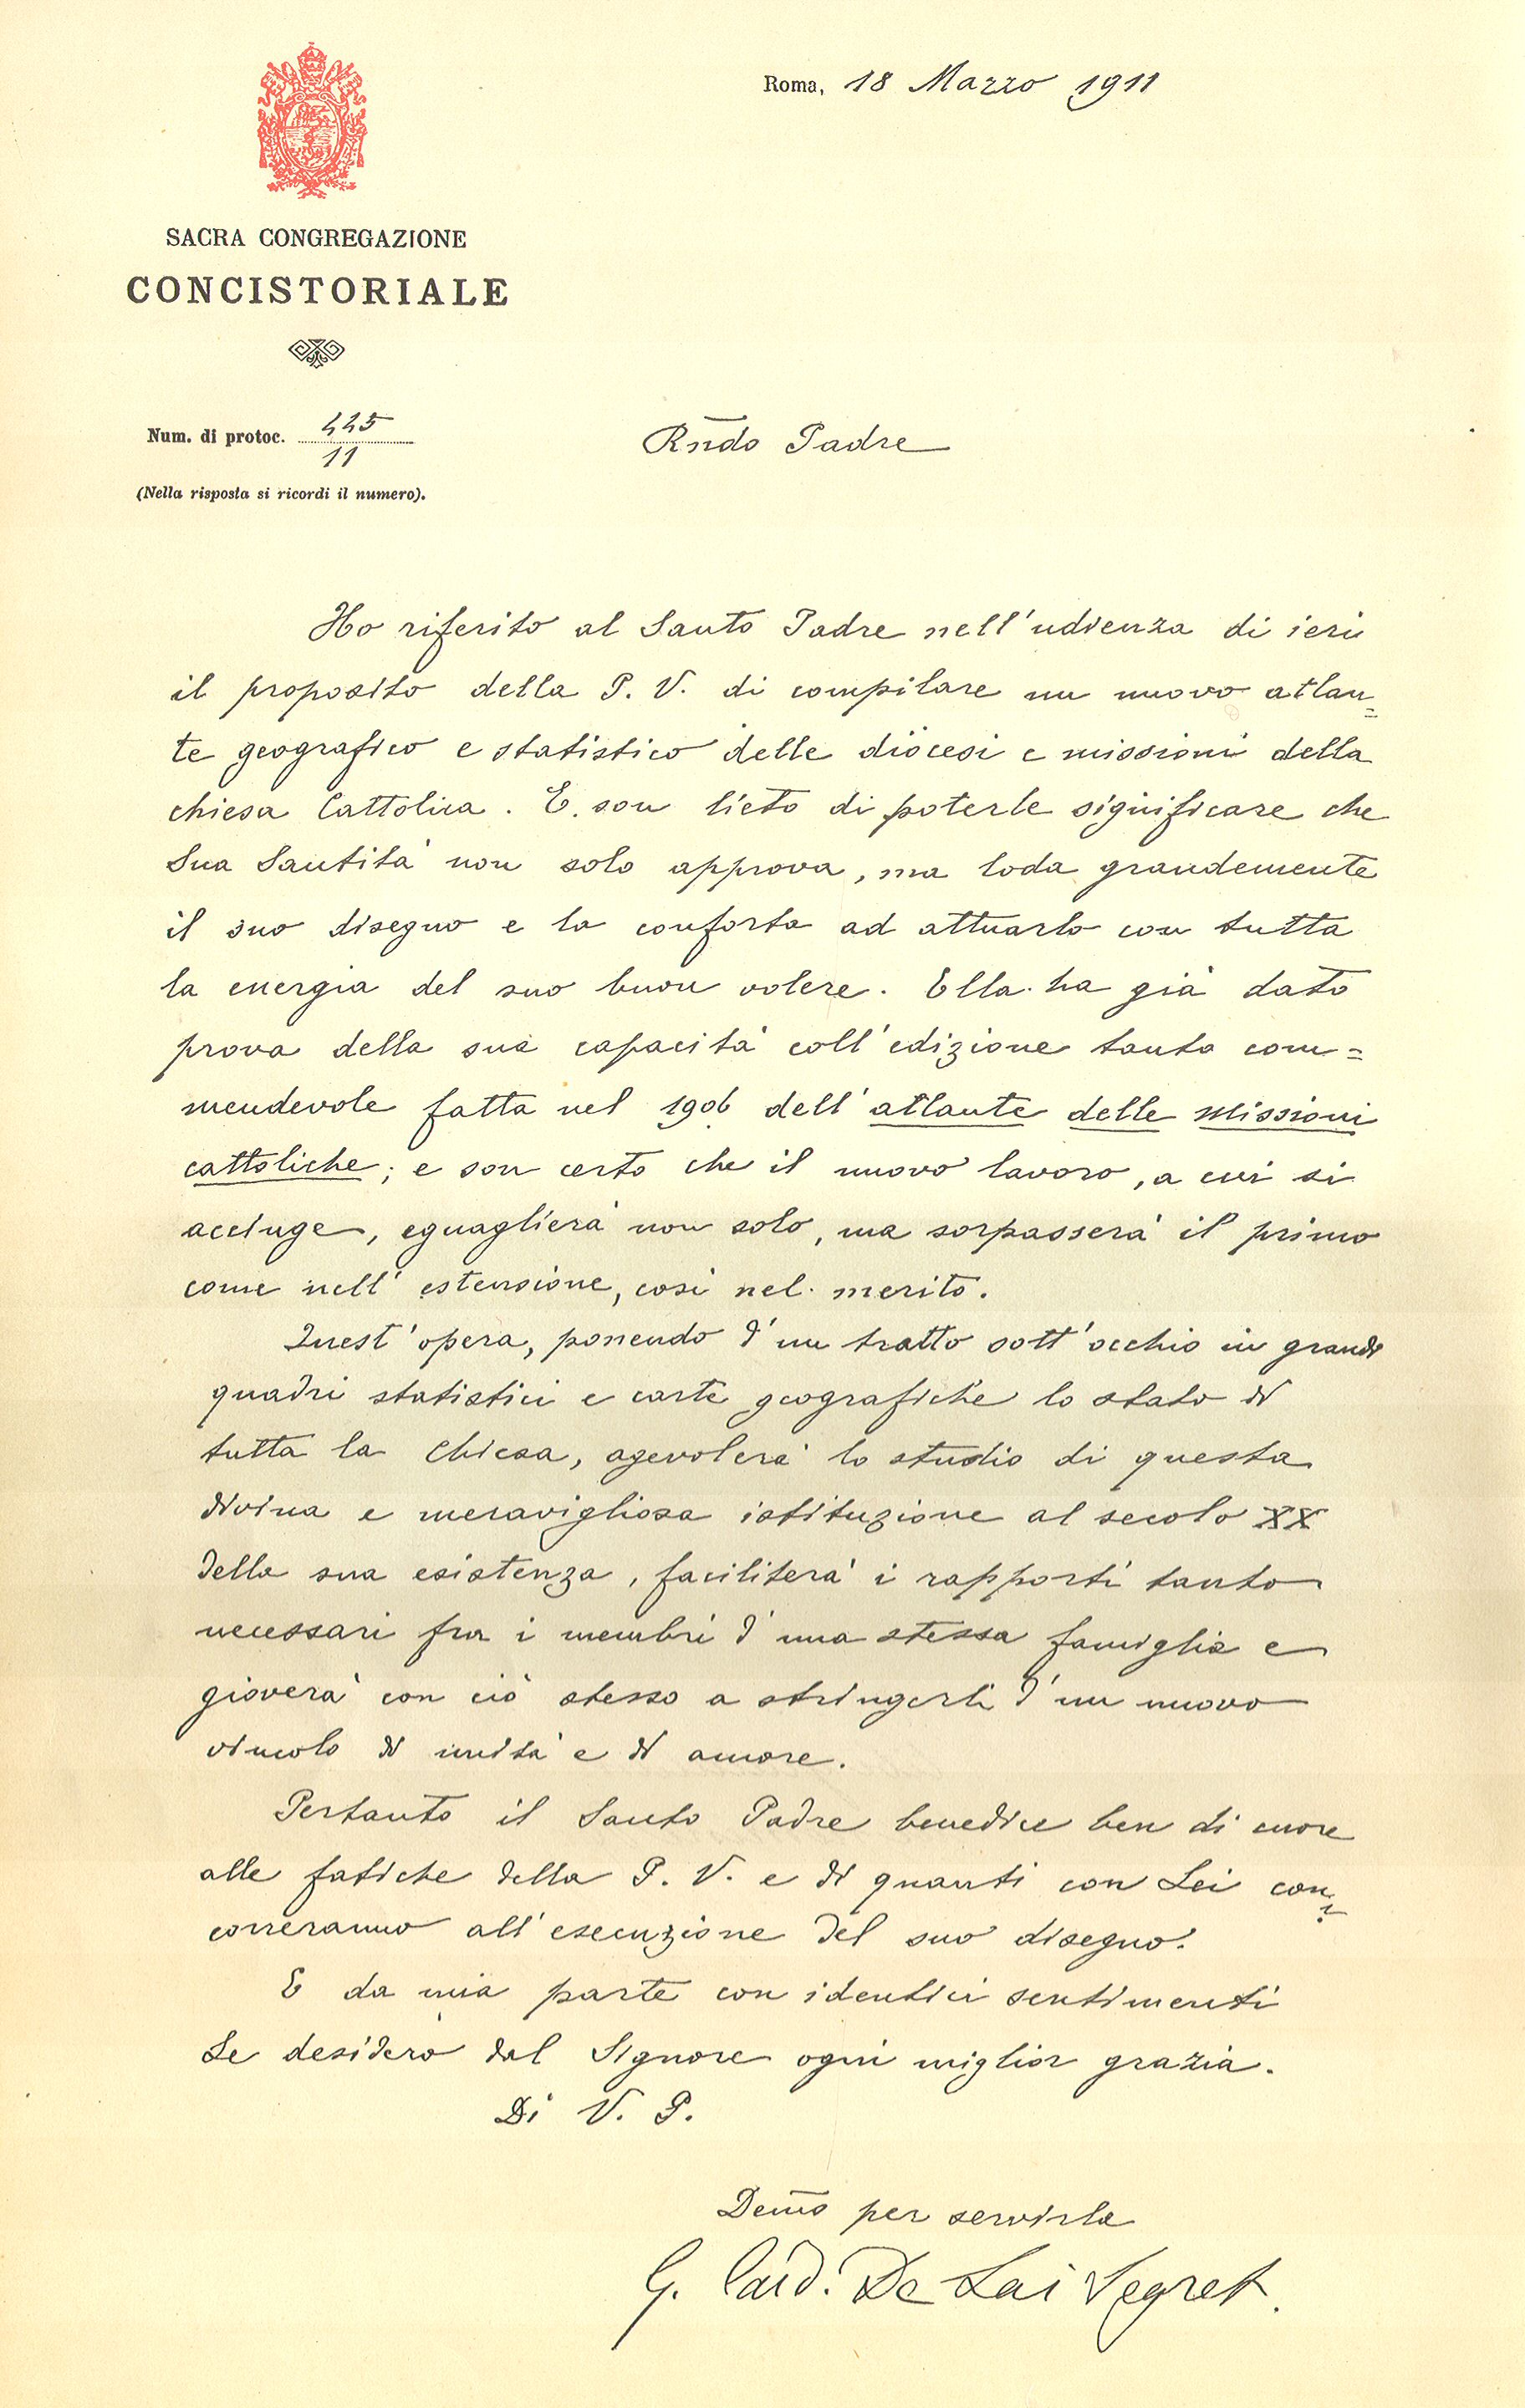 Roma, 18 Marzo 1911
SACRA CONGREGAZIONE
CONCISTORIALE
Num. di protoc. 445
11
(Nella risposta si ricordi il numero).
Rñdo Padre
Ho riferito al Santo Padre nell'udienza di ieri
il proposito della P. V. di compilare un nuovo atlan=
te geografico e statistico delle diocesi e missioni della
chiesa Cattolica. E son lieto di poterle significare che
Sua Santità non solo approva, ma loda grandemente
il suo disegno e la conforta ad attuarlo con tutta
la energia del suo buon volere. Ella ha già dato
prova della sua capacità coll'edizione tanto com=
mendevole fatta nel 1906 dell'atlante delle missioni
cattoliche; e son certo che il nuovo lavoro, a cui si
accinge, eguaglierà non solo, ma sorpasserà il primo
come nell'estensione, così nel merito.
Quest'opera, ponendo d'un tratto sott'occhio in grandi
quadri statistici e carte geografiche lo stato di
tutta la Chiesa, agevolerà lo studio di questa
divina e meravigliosa istituzione al secolo XX
della sua esistenza, faciliterà i rapporti tanto
necessari fra i membri d'una stessa famiglia e
gioverà con ciò stesso a stringerli d'un nuovo
vincolo di unità e di amore.
Pertanto il Santo Padre benedice ben di cuore
alle fatiche della P. V. e di quanti con Lei con=
correranno all'esecuzione del suo disegno.
E da mia parte con identici sentimenti
Le desidero dal Signore ogni miglior grazia.
Di V. P.
Dem̃o per servirla
G. Card. De Lai Segret.